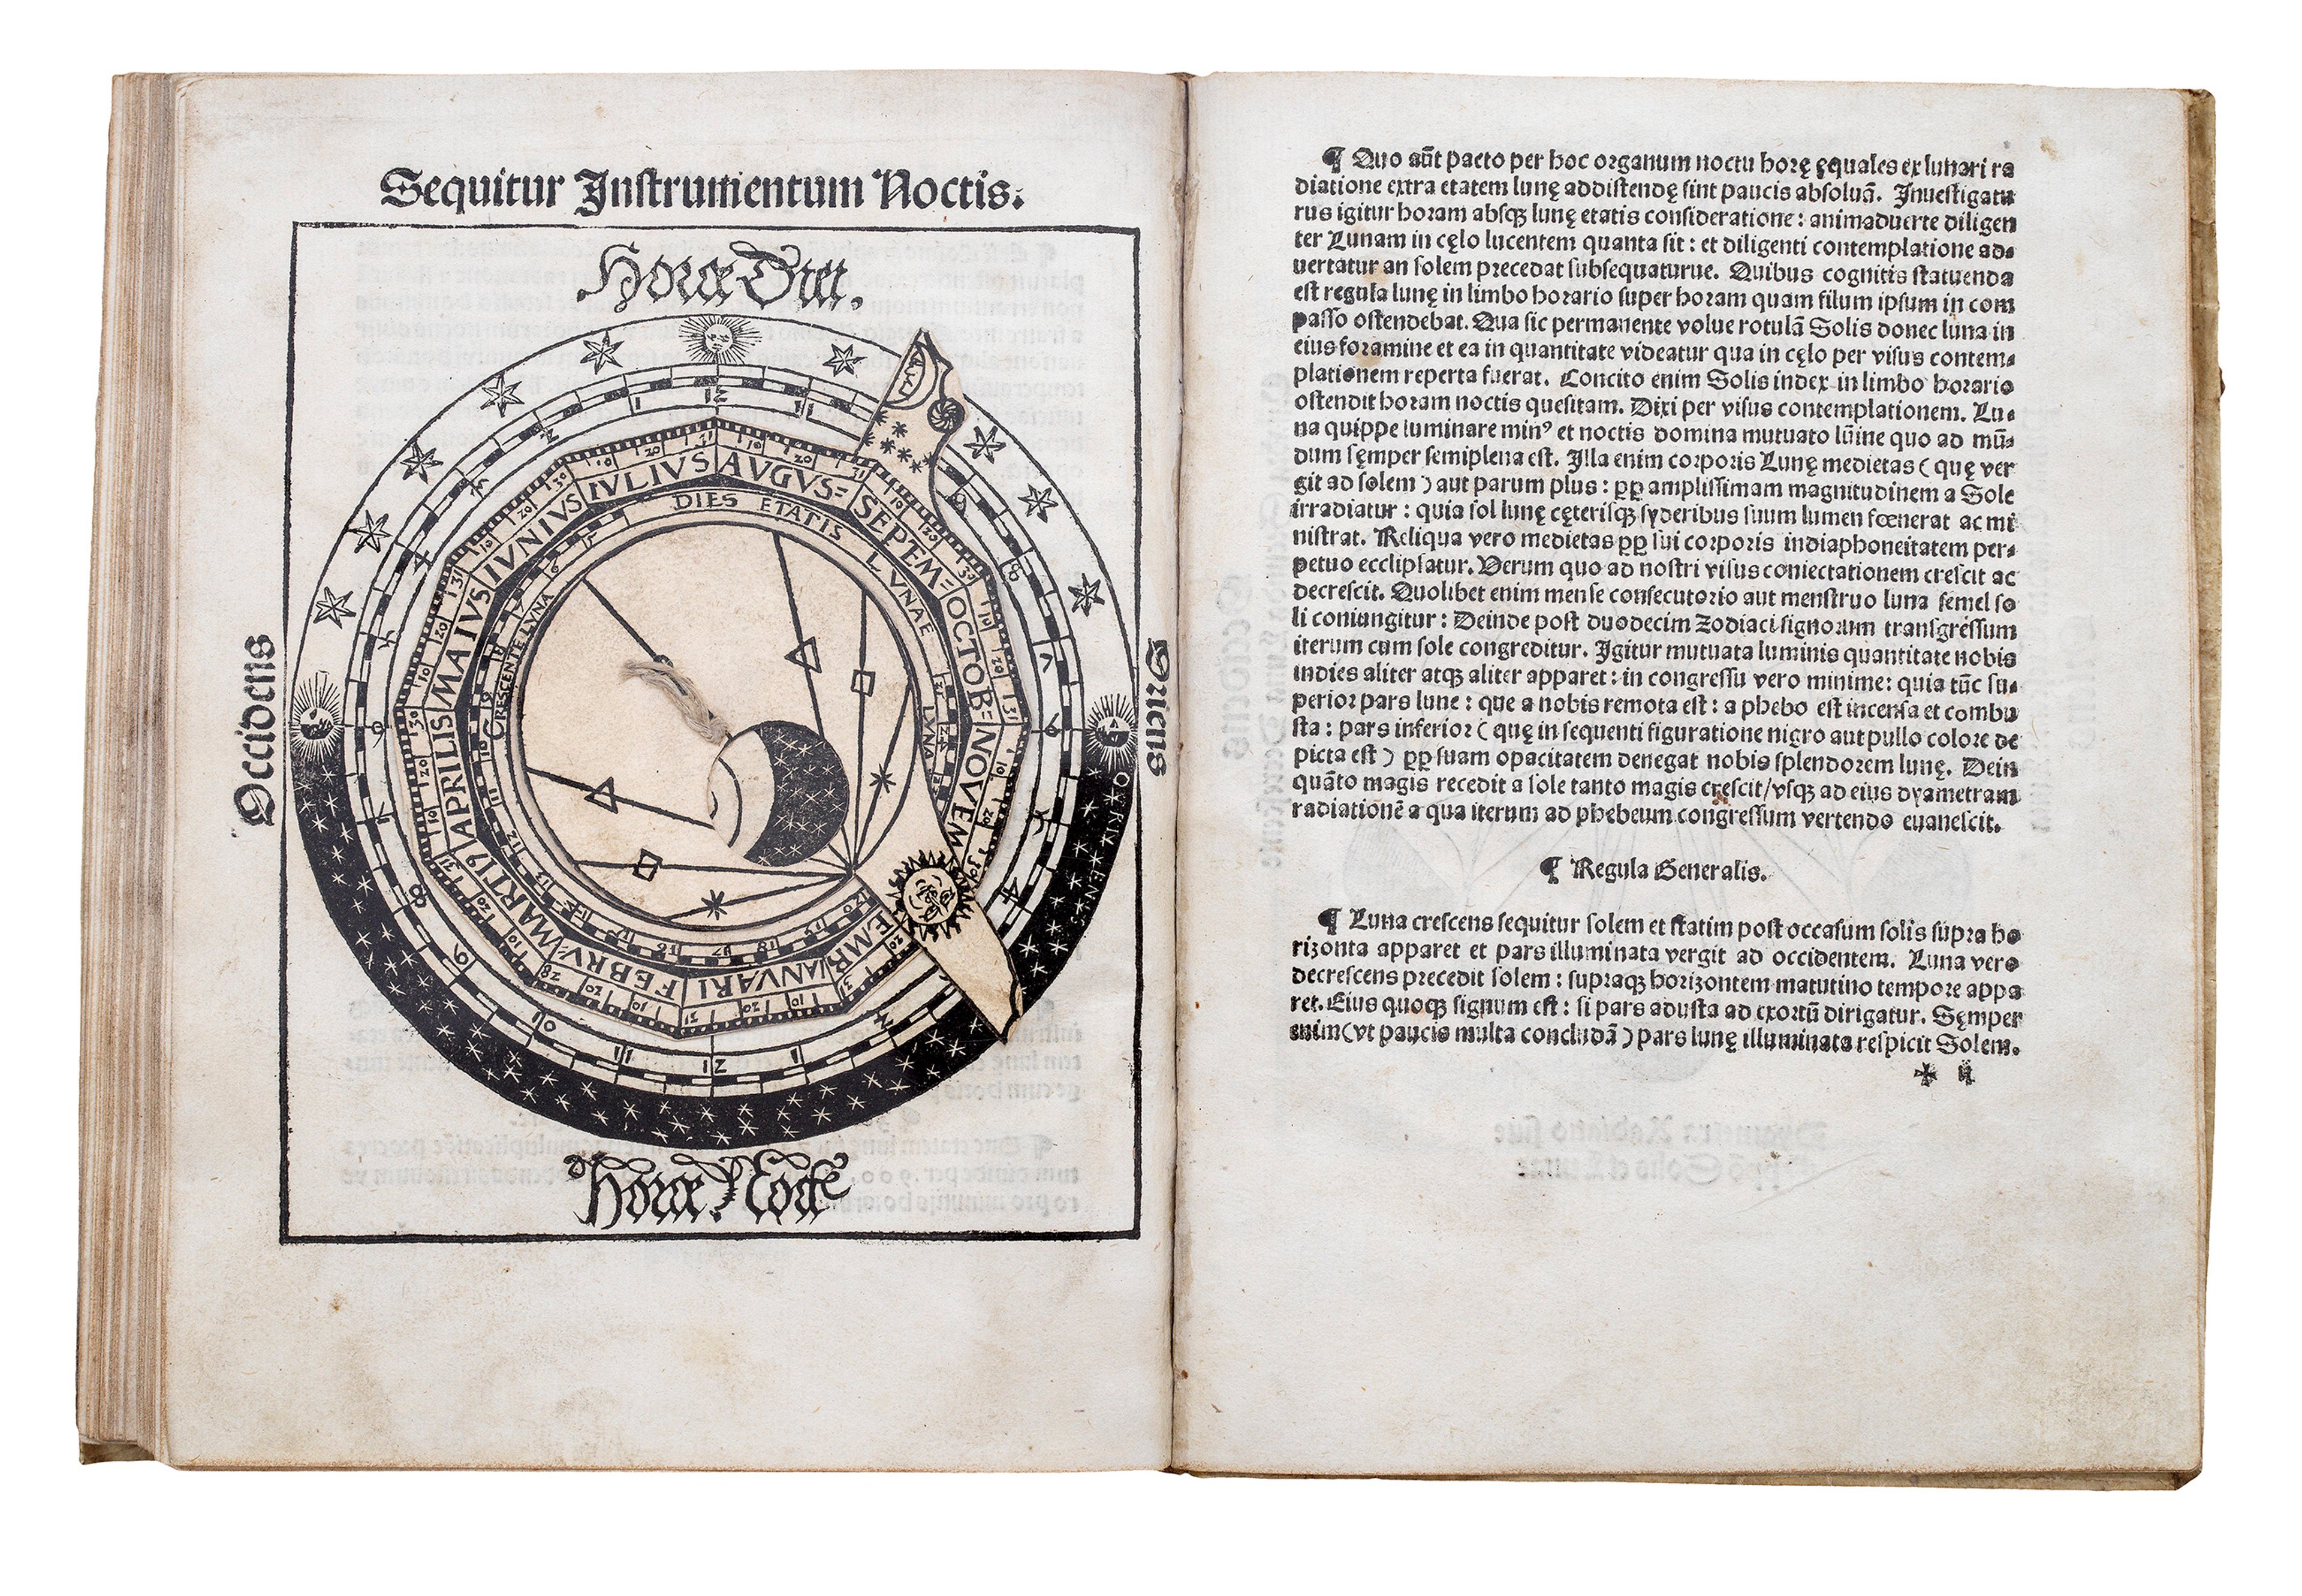 Sequitur Instrumentum Noctis:
Horæ Diei.
Occidens
Oriens
12
1
2
4
11
9
8
7
6
IVLIVS
AVGVS=
SEPEM=
OCTOB=
NOVEM
IANVARI
FEBRV=
MARTI9
APRILIS
MAIVS
IVNIVS
DIES ETATIS LVNAE
CRESCENTE LVNA
LVNA
Horæ Noct
¶ Quo aūt pacto per hoc organum noctu horę ęquales ex lunari ra
diatione extra etatem lunę addiscendę sint paucis absoluā. Inuestigatu
rus igitur horam absqꝫ lunę etatis consideratione: animaduerte diligen
ter Lunam in cęlo lucentem quanta sit: et diligenti contemplatione ad-
uertatur an solem precedat subsequaturue. Quibus cognitis statuenda
est regula lunę in limbo horario super horam quam filum ipsum in com
passo ostendebat. Qua sic permanente volue rotulā Solis donec luna in
eius foramine et ea in quantitate videatur qua in cęlo per visus contem-
plationem reperta fuerat. Concito enim Solis index in limbo horario
ostendit horam noctis quesitam. Dixi per visus contemplationem. Lu-
na quippe luminare minꝰ et noctis domina mutuato lūine quo ad mū-
dum sęmper semiplena est. Illa enim corporis Lunę medietas (quę ver
git ad solem) aut parum plus: ꝓp amplissimam magnitudinem a Sole
irradiatur: quia sol lunę cęterisqꝫ syderibus suum lumen fœnerat ac mi
nistrat. Reliqua vero medietas ꝓp sui corporis indiaphoneitatem per-
petuo ecclipsatur. Verum quo ad nostri visus coniectationem crescit ac
decrescit. Quolibet enim mense consecutorio aut menstruo luna semel so
li coniungitur: Deinde post duodecim Zodiaci signorum transgressum
iterum cum sole congreditur. Igitur mutuata luminis quantitate nobis
indies aliter atqꝫ aliter apparet: in congressu vero minime: quia tūc su-
perior pars lune: que a nobis remota est: a phebo est incensa et combu
sta: pars inferior (quę in sequenti figuratione nigro aut pullo colore de
picta est) ꝓp suam opacitatem denegat nobis splendorem lunę. Dein
quāto magis recedit a sole tanto magis crescit/vsqꝫ ad eius dyametram
radiationē a qua iterum ad phebeum congressum vertendo euanescit.
¶ Regula Generalis.
¶ Luna crescens sequitur solem et statim post occasum solis supra ho
rizonta apparet et pars illuminata vergit ad occidentem. Luna vero
decrescens precedit solem: supraqꝫ horizontem matutino tempore appa
ret. Eius quoqꝫ signum est: si pars adusta ad exortū dirigatur. Sęmper
enim (vt paucis multa concludā) pars lunę illuminata respicit Solem.
✠ ij